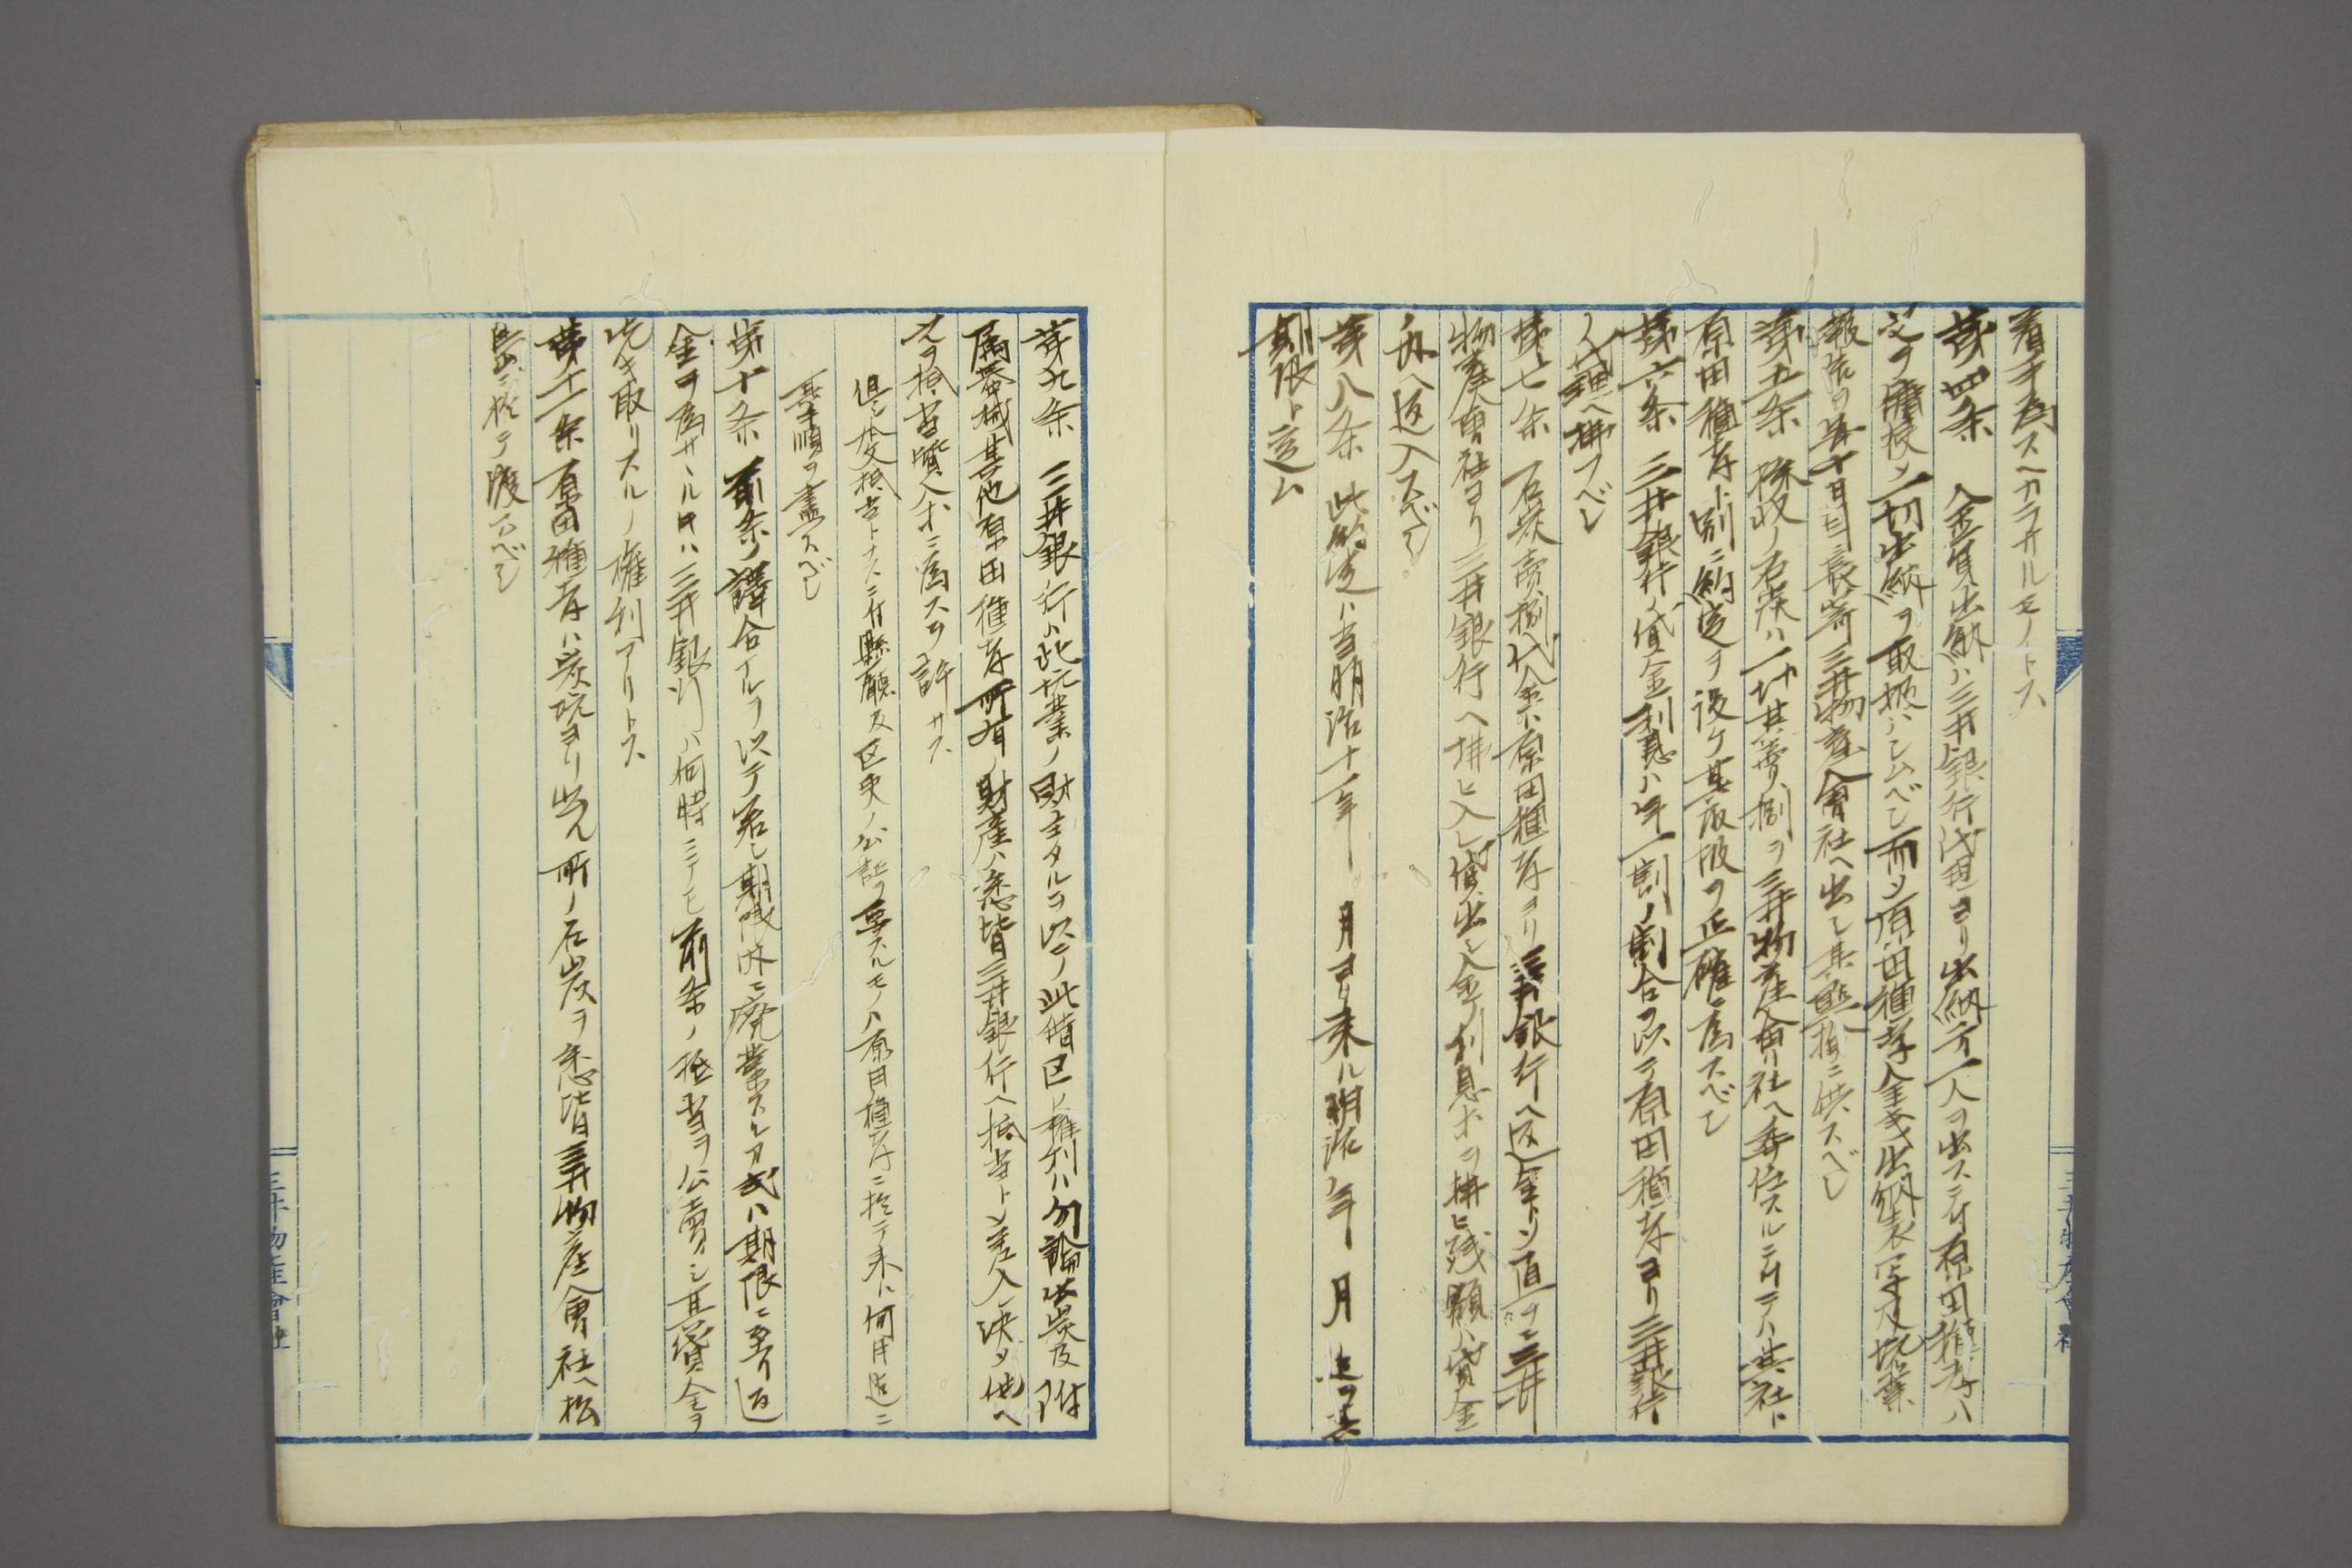 着手為スヘカラサルモノトス
第四条 金員出納ハ三井銀行代理ヨリ出納方一人ヲ出スニ付原田種孝ハ
之ヲ傭役シ一切出納ヲ取扱ハシムベシ而シ原田種孝金銭出納表写及坑業
報告ヲ毎十日目ニ長崎三井物産会社ヘ出シ其監
第五条 採収ノ石炭ハ一切其売リ捌ヲ三井物産会社ヘ委任スルニ付テハ其社ト
原田種孝ト別ニ約定ヲ設ケ其取扱ヲ正確ニ為スベシ
第六条 三井銀行ノ貸金利息ハ年一割ノ割合ヲ以テ原田種孝ヨリ三井銀行
代理ヘ拂フベシ
第七条 石炭売捌代金ハ原田種孝ヨリ三井銀行ヘ返金トシ直チニ三井
物産会社ヨリ三井銀行ヘ拂ヒ入レ貸出シ金ノ利息ホヲ拂ヒ残額ハ貸金
ノ内ヘ返入スベシ
第八条 此約定ハ当明治十一年 月ヨリ来ル明治 年 月迄ヲ其
期限ト定ム
第九条 三井銀行ハ此坑業ノ財主タルヲ以テ此借区ノ権利ハ勿論出炭及附
属器械其他原田種孝所有ノ財産ハ悉皆三井銀行ヘ抵当トシ差入决シ他ヘ
之ヲ抵当質入ホニ為スヲ許サス
但シ本文抵当トナスニ付縣廳及区吏ノ公証ヲ要スルモノハ原田種孝ニ於テ来ル何月迄ニ
其手順ヲ盡スベシ
第十条 前条ノ譯合ナルヲ以テ若シ期限内ニ廃業スルカ或ハ期限ニ至リ返
金ヲ為サヽル時ハ三井銀行ハ何時ニテモ前条ノ抵当ヲ公売シ其貸金ヲ
引キ取リスルノ権利アリトス
第十一条 原田種孝ハ炭坑ヨリ出ル所ノ石炭ヲ悉皆三井物産会社ヘ松
島ニ於テ渡スベシ
三井物産會社
三井物産會社